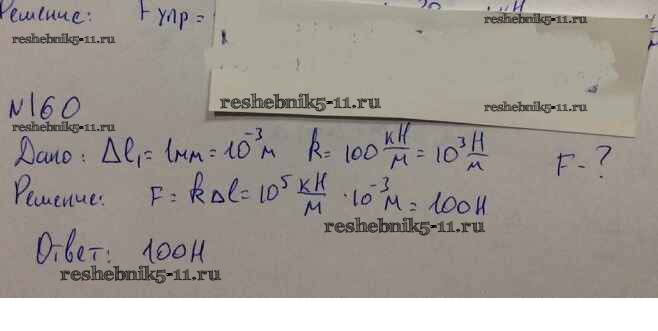 Решение: Fупр =
reshebnik5-11.ru
reshebnik5-11.ru
reshebnik5-11.ru
reshebnik5-11.ru
reshebnik5-11.ru
N160
reshebnik5-11.ru
Дано: Δl₁ = 1мм = 10⁻³м k = 100 кН/м = 10³ Н/м F - ?
Решение: F = kΔl = 10⁵ кН/м · 10⁻³м = 100Н
reshebnik5-11.ru
Ответ: 100Н
reshebnik5-11.ru